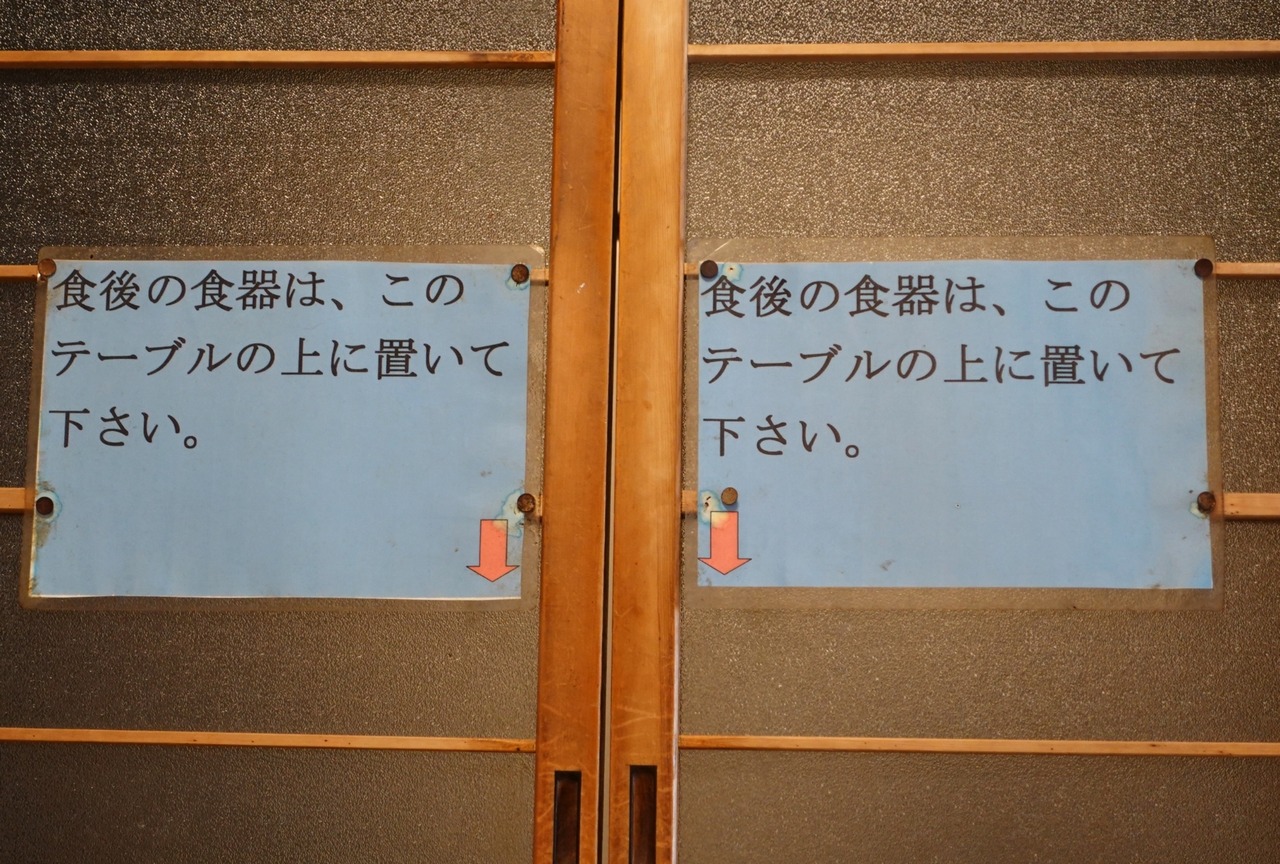 食後の食器は、この
テーブルの上に置いて
下さい。
食後の食器は、この
テーブルの上に置いて
下さい。